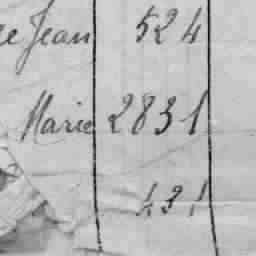 e Jean 524
Marie 2831
431